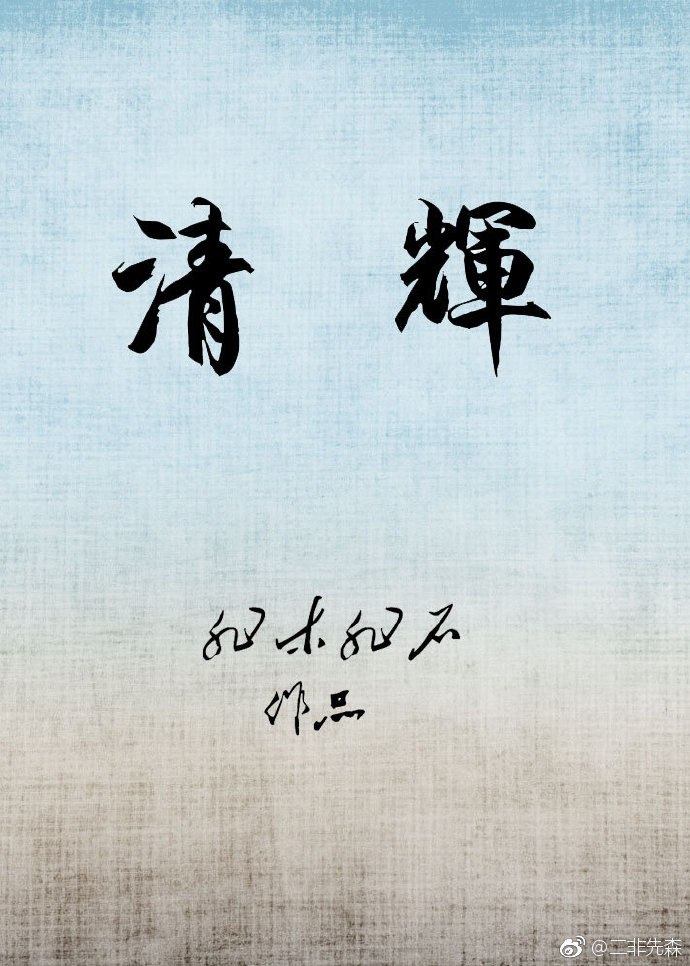 清輝
非木非石
作品
@二非先森